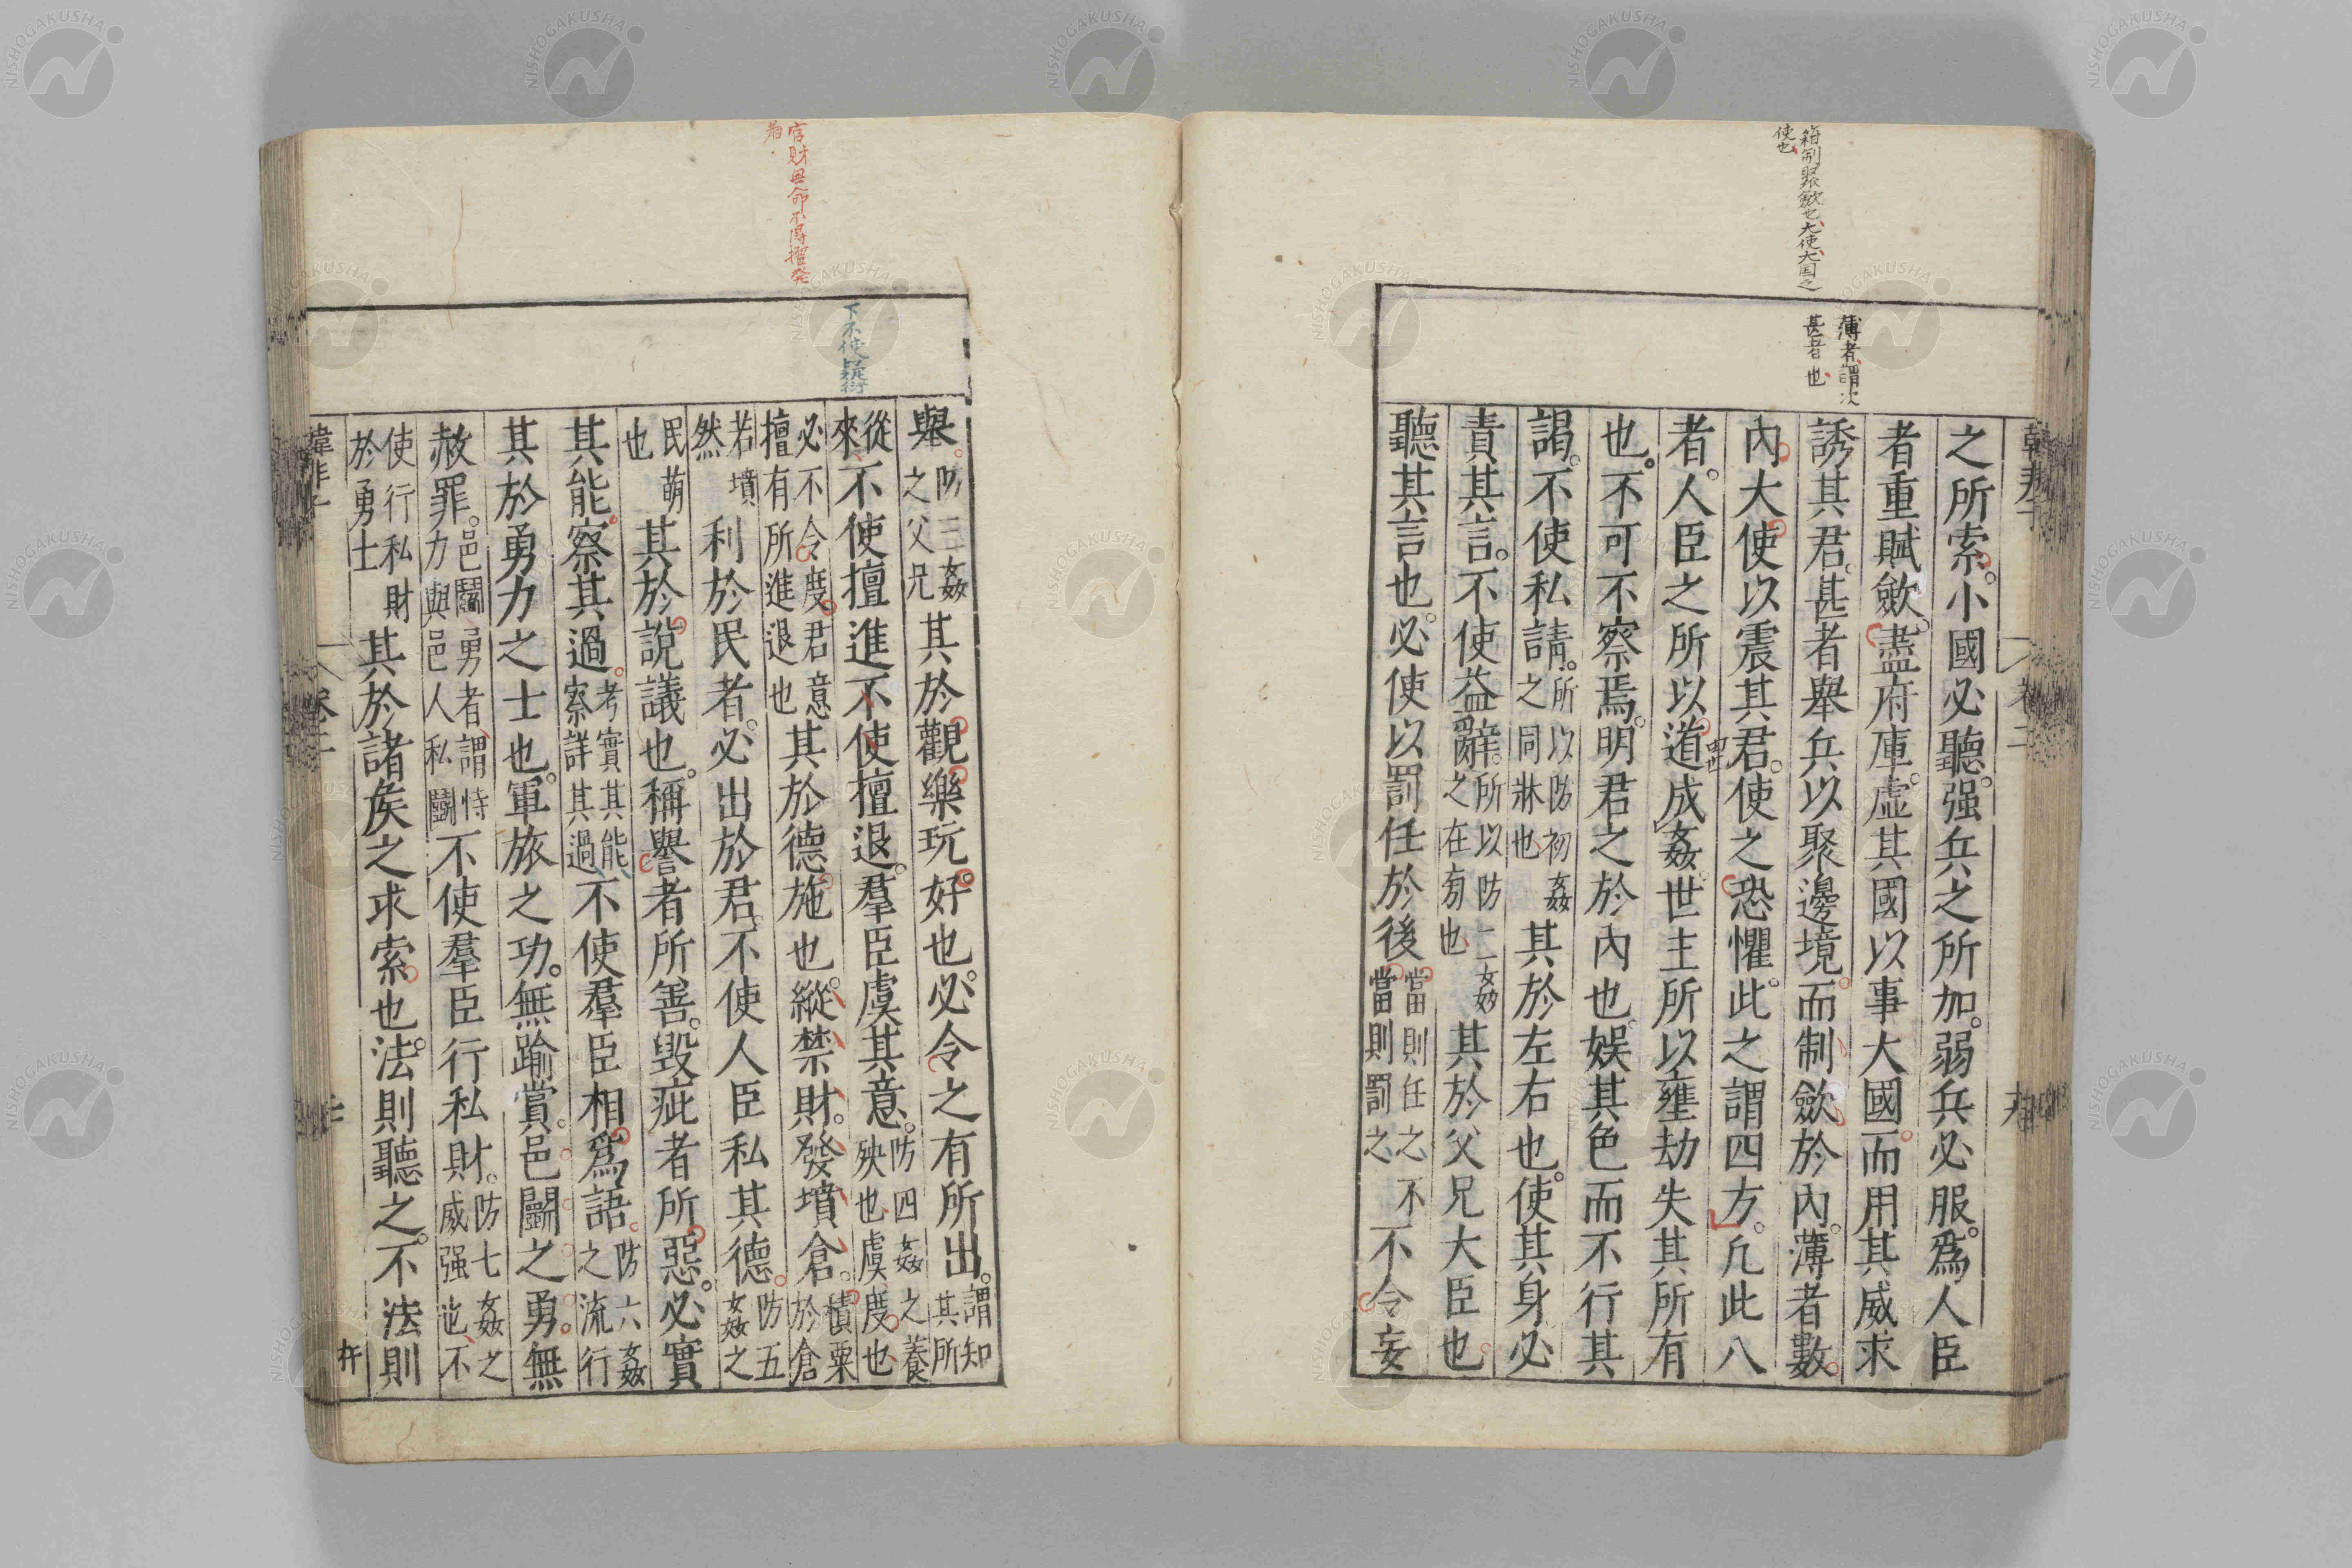 箝制聚歛也大使大国之
使也
薄者謂次
甚者也
之所索。小國必聽。强兵之所加。弱兵必服。爲人臣
者重賦歛。盡府庫。虛其國以事大國。而用其威求
誘其君。甚者舉兵以聚邊境。而制歛於內。薄者數。
內大使以震其君。使之恐懼。此之謂四方。凡此八
者。人臣之所以道成姦。世主所以壅劫失其所有
也。不可不察焉。明君之於內也。娛其色而不行其
謁。不使私請。所以防初姦之同牀也其於左右也。使其身必
責其言。不使益辭。所以防二姦之在旁也其於父兄大臣也。
聽其言也。必使以罰任於後。當則任之不當則罰之不令妄
官財毋命不得擅発
者
下不使疑衍
舉。防三姦之父兄其於觀樂玩好也。必令之有所出。謂知其所
從來不使擅進不使擅退。羣臣虞其意。防四姦之養殃也虞度也
必不令度君意擅有所進退也其於德施也。縱禁財。發墳倉。積粟於倉
若墳然利於民者。必出於君。不使人臣私其德。防五姦之
民萌也其於說議也。稱譽者所善。毀疵者所惡。必實
其能。察其過。考實其能察詳其過不使羣臣相爲語。防六姦之流行
其於勇力之士也。軍旅之功。無踰賞。邑鬭之勇。無
赦罪。邑鬭勇者謂恃力與邑人私鬭不使羣臣行私財。防七姦之威强也不
使行私財於勇士其於諸矦之求索也。法則聽之。不法則
NISHOGAKUSHA